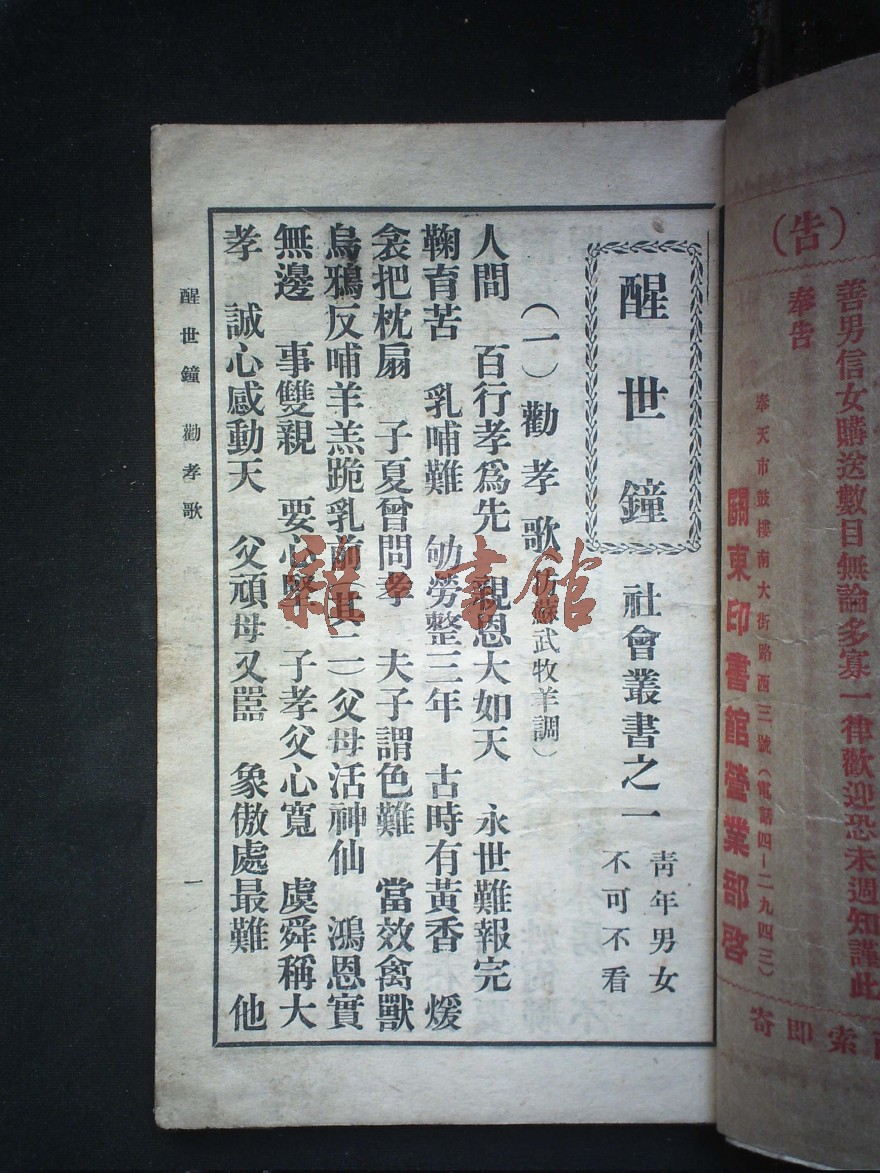 （告）
善男信女購送數目無論多寡一律歡迎恐未週知謹此
奉告
奉天市鼓樓南大街路西三號（電話四-二九四三）
關東印書館營業部啓
索即寄
醒世鐘
社會叢書之一
青年男女
不可不看
（一）勸孝歌（仿蘇武牧羊調）
人間　百行孝爲先　親恩大如天　永世難報完
鞠育苦　乳哺難　劬勞整三年　古時有黃香　煖
衾把枕扇　子夏曾問孝　夫子謂色難　當效禽獸
烏鴉反哺羊羔跪乳前（其二）父母活神仙　鴻恩實
無邊　事雙親　要心堅　子孝父心寬　虞舜稱大
孝　誠心感動天　父頑母又嚚　象傲處最難　他
醒世鐘　勸孝歌
一
雜書館